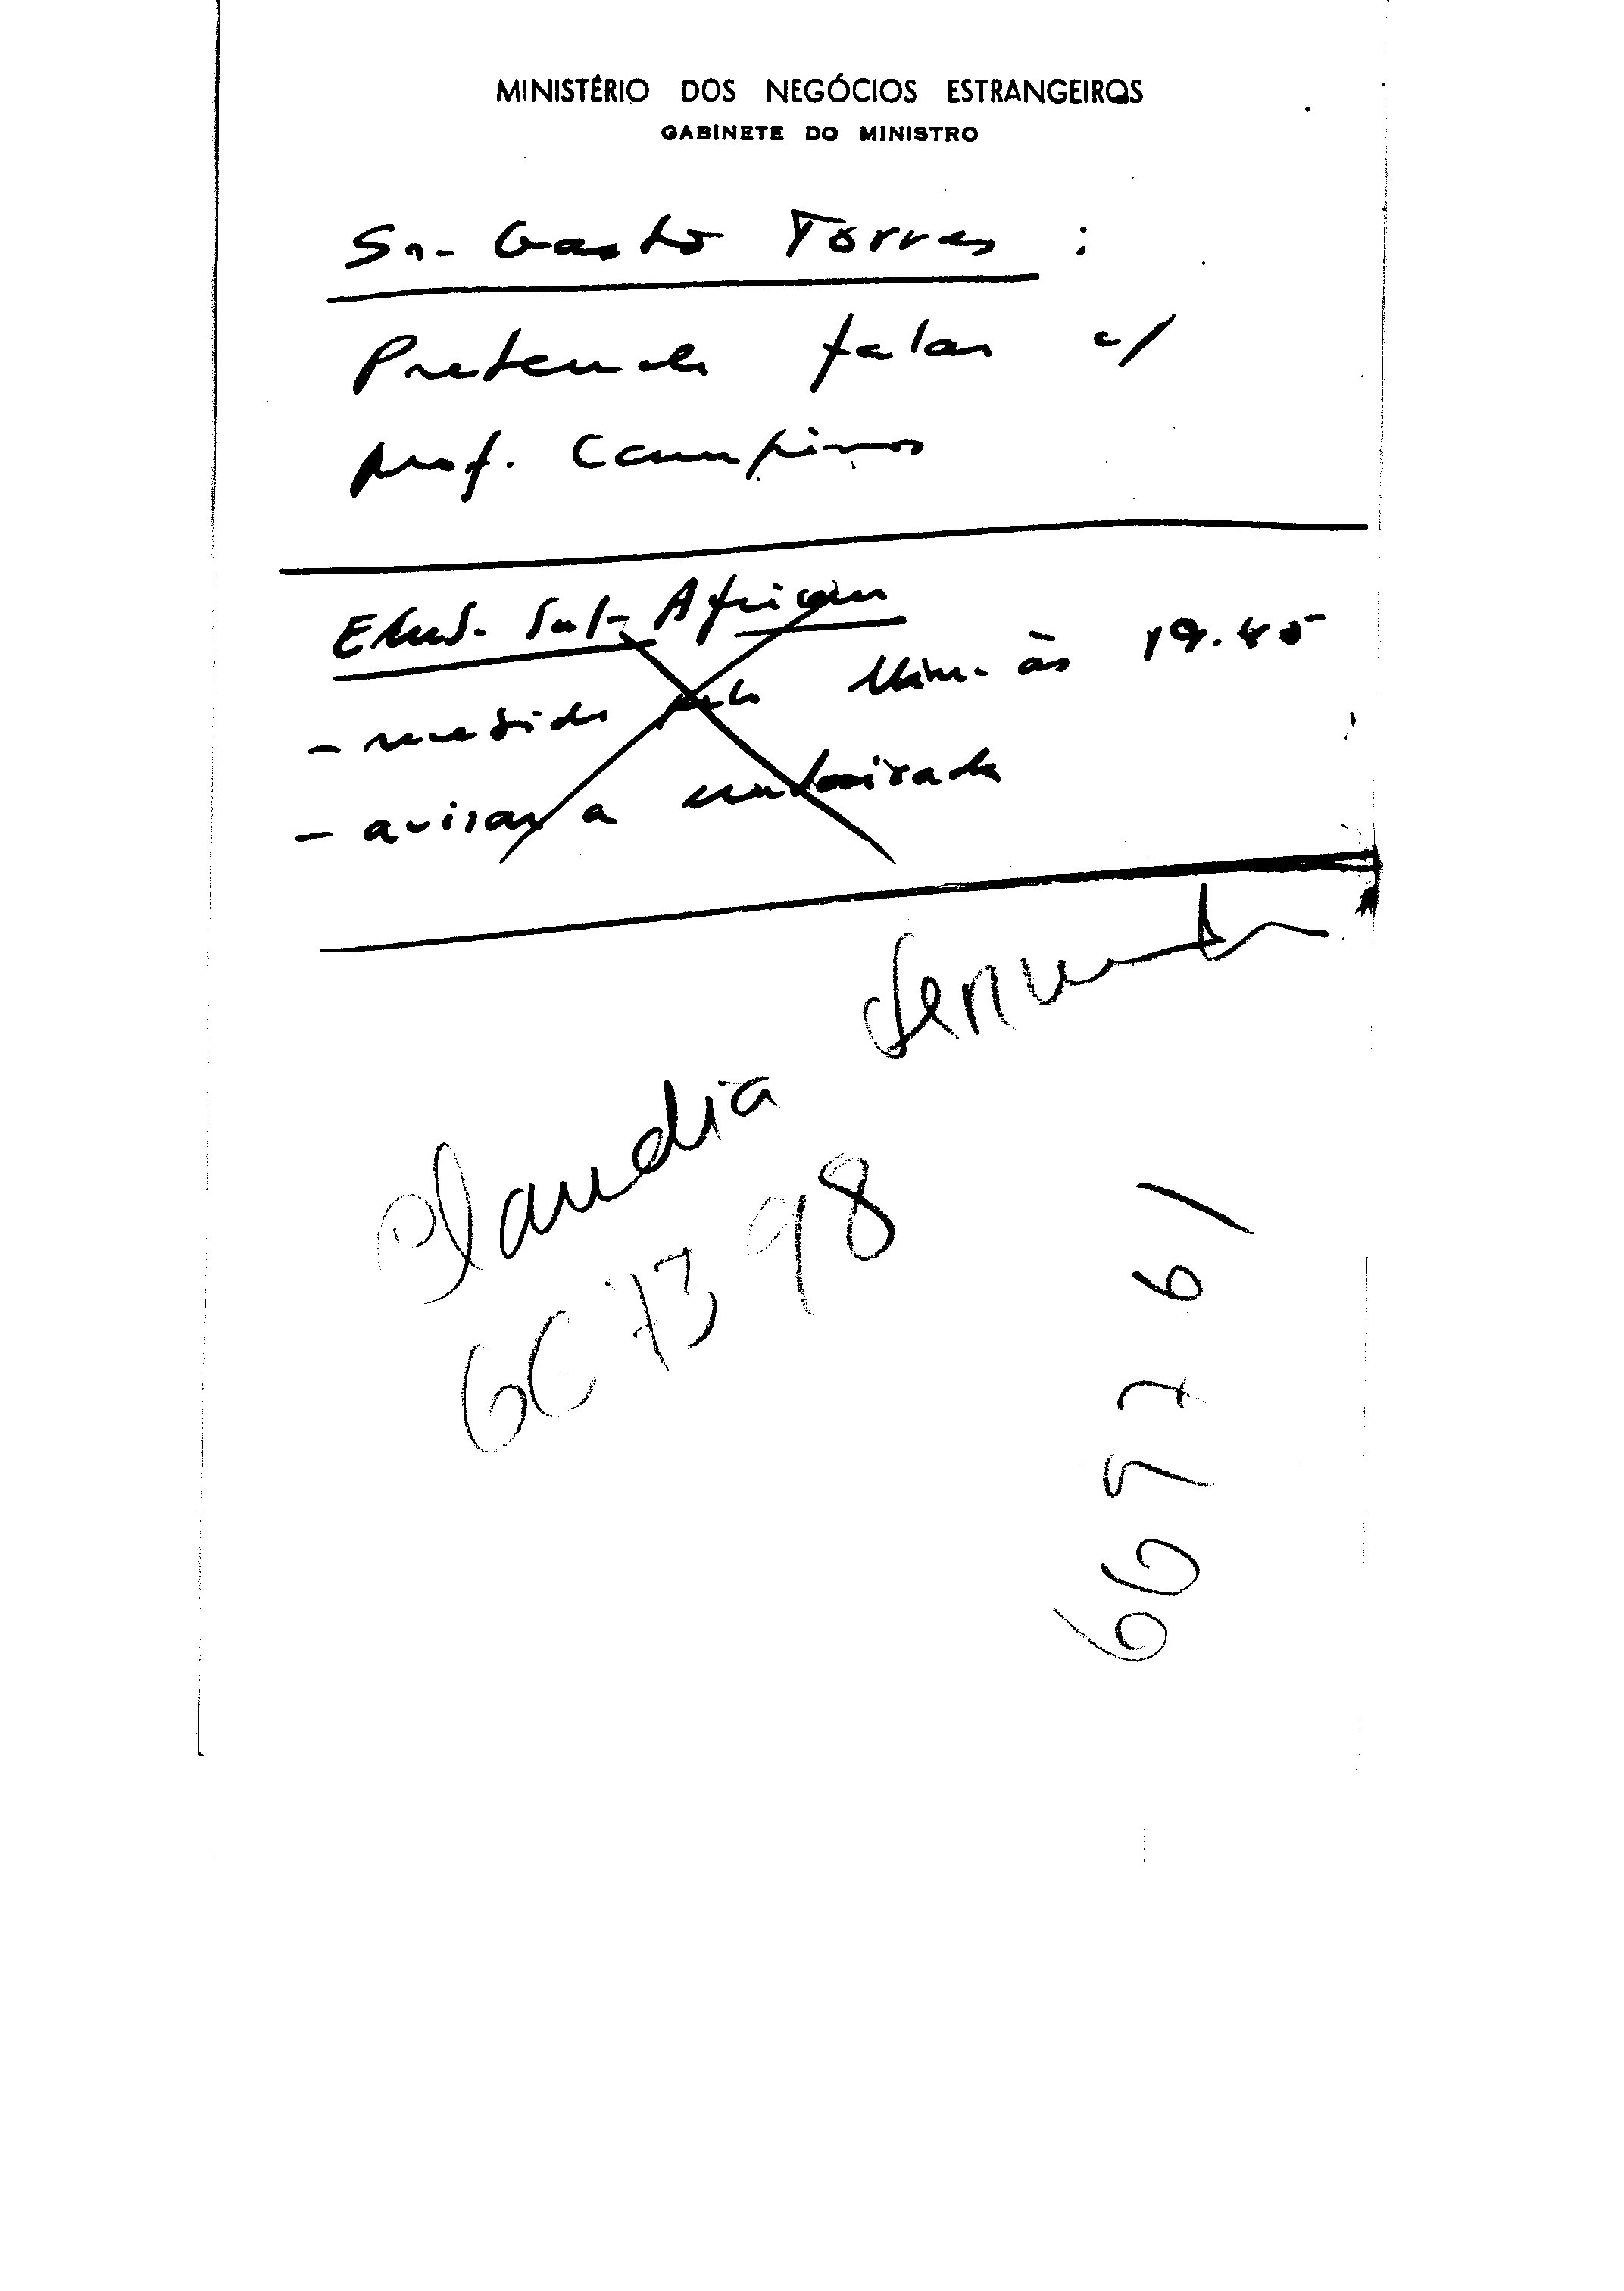 MINISTÉRIO DOS NEGÓCIOS ESTRANGEIROS
GABINETE DO MINISTRO
Sr. Gastão Torres :
Pretende falar c/
prof. Campinos
Emb. Sul-Africano
- recebido pelo Min. às 19.45
- avisar a embaixada
Claudia
667398
669761